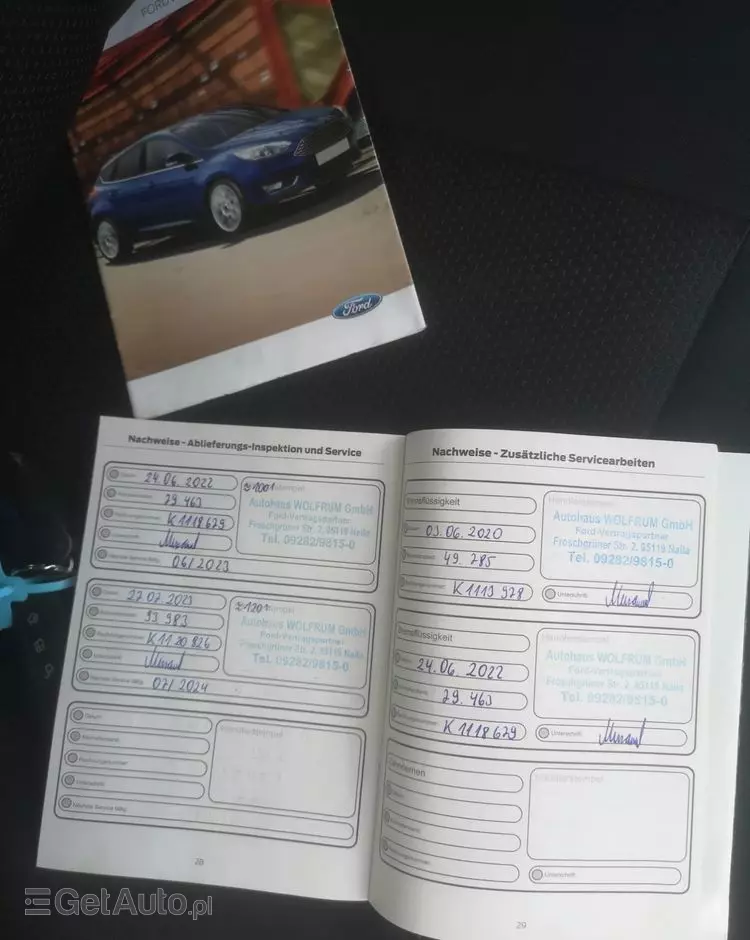 FORD
Ford
Nachweise - Ablieferungs-Inspektion und Service
24.06.2022
79 463
K1118679
06/2023
≥1001
Autohaus WOLFRUM GmbH
Ford-Vertragspartner
Froschgrüner Str. 2, 95119 Naila
Tel. 09282/9815-0
27.07.2023
93 983
K1120826
07/2024
≥1201
Autohaus WOLFRUM GmbH
Ford-Vertragspartner
Froschgrüner Str. 2, 95119 Naila
Tel. 09282/9815-0
Datum
Kilometerstand
Rechnungsnummer
Unterschrift
Nächste Service fällig
Händlerstempel
28
Nachweise - Zusätzliche Servicearbeiten
Bremsflüssigkeit
03.06.2020
49.785
K1113978
Händlerstempel
Autohaus WOLFRUM GmbH
Ford-Vertragspartner
Froschgrüner Str. 2, 95119 Naila
Tel. 09282/9815-0
Unterschrift
Bremsflüssigkeit
24.06.2022
79.463
K1118679
Händlerstempel
Autohaus WOLFRUM GmbH
Ford-Vertragspartner
Froschgrüner Str. 2, 95119 Naila
Tel. 09282/9815-0
Unterschrift
Händlerstempel
Unterschrift
29
GetAuto.pl